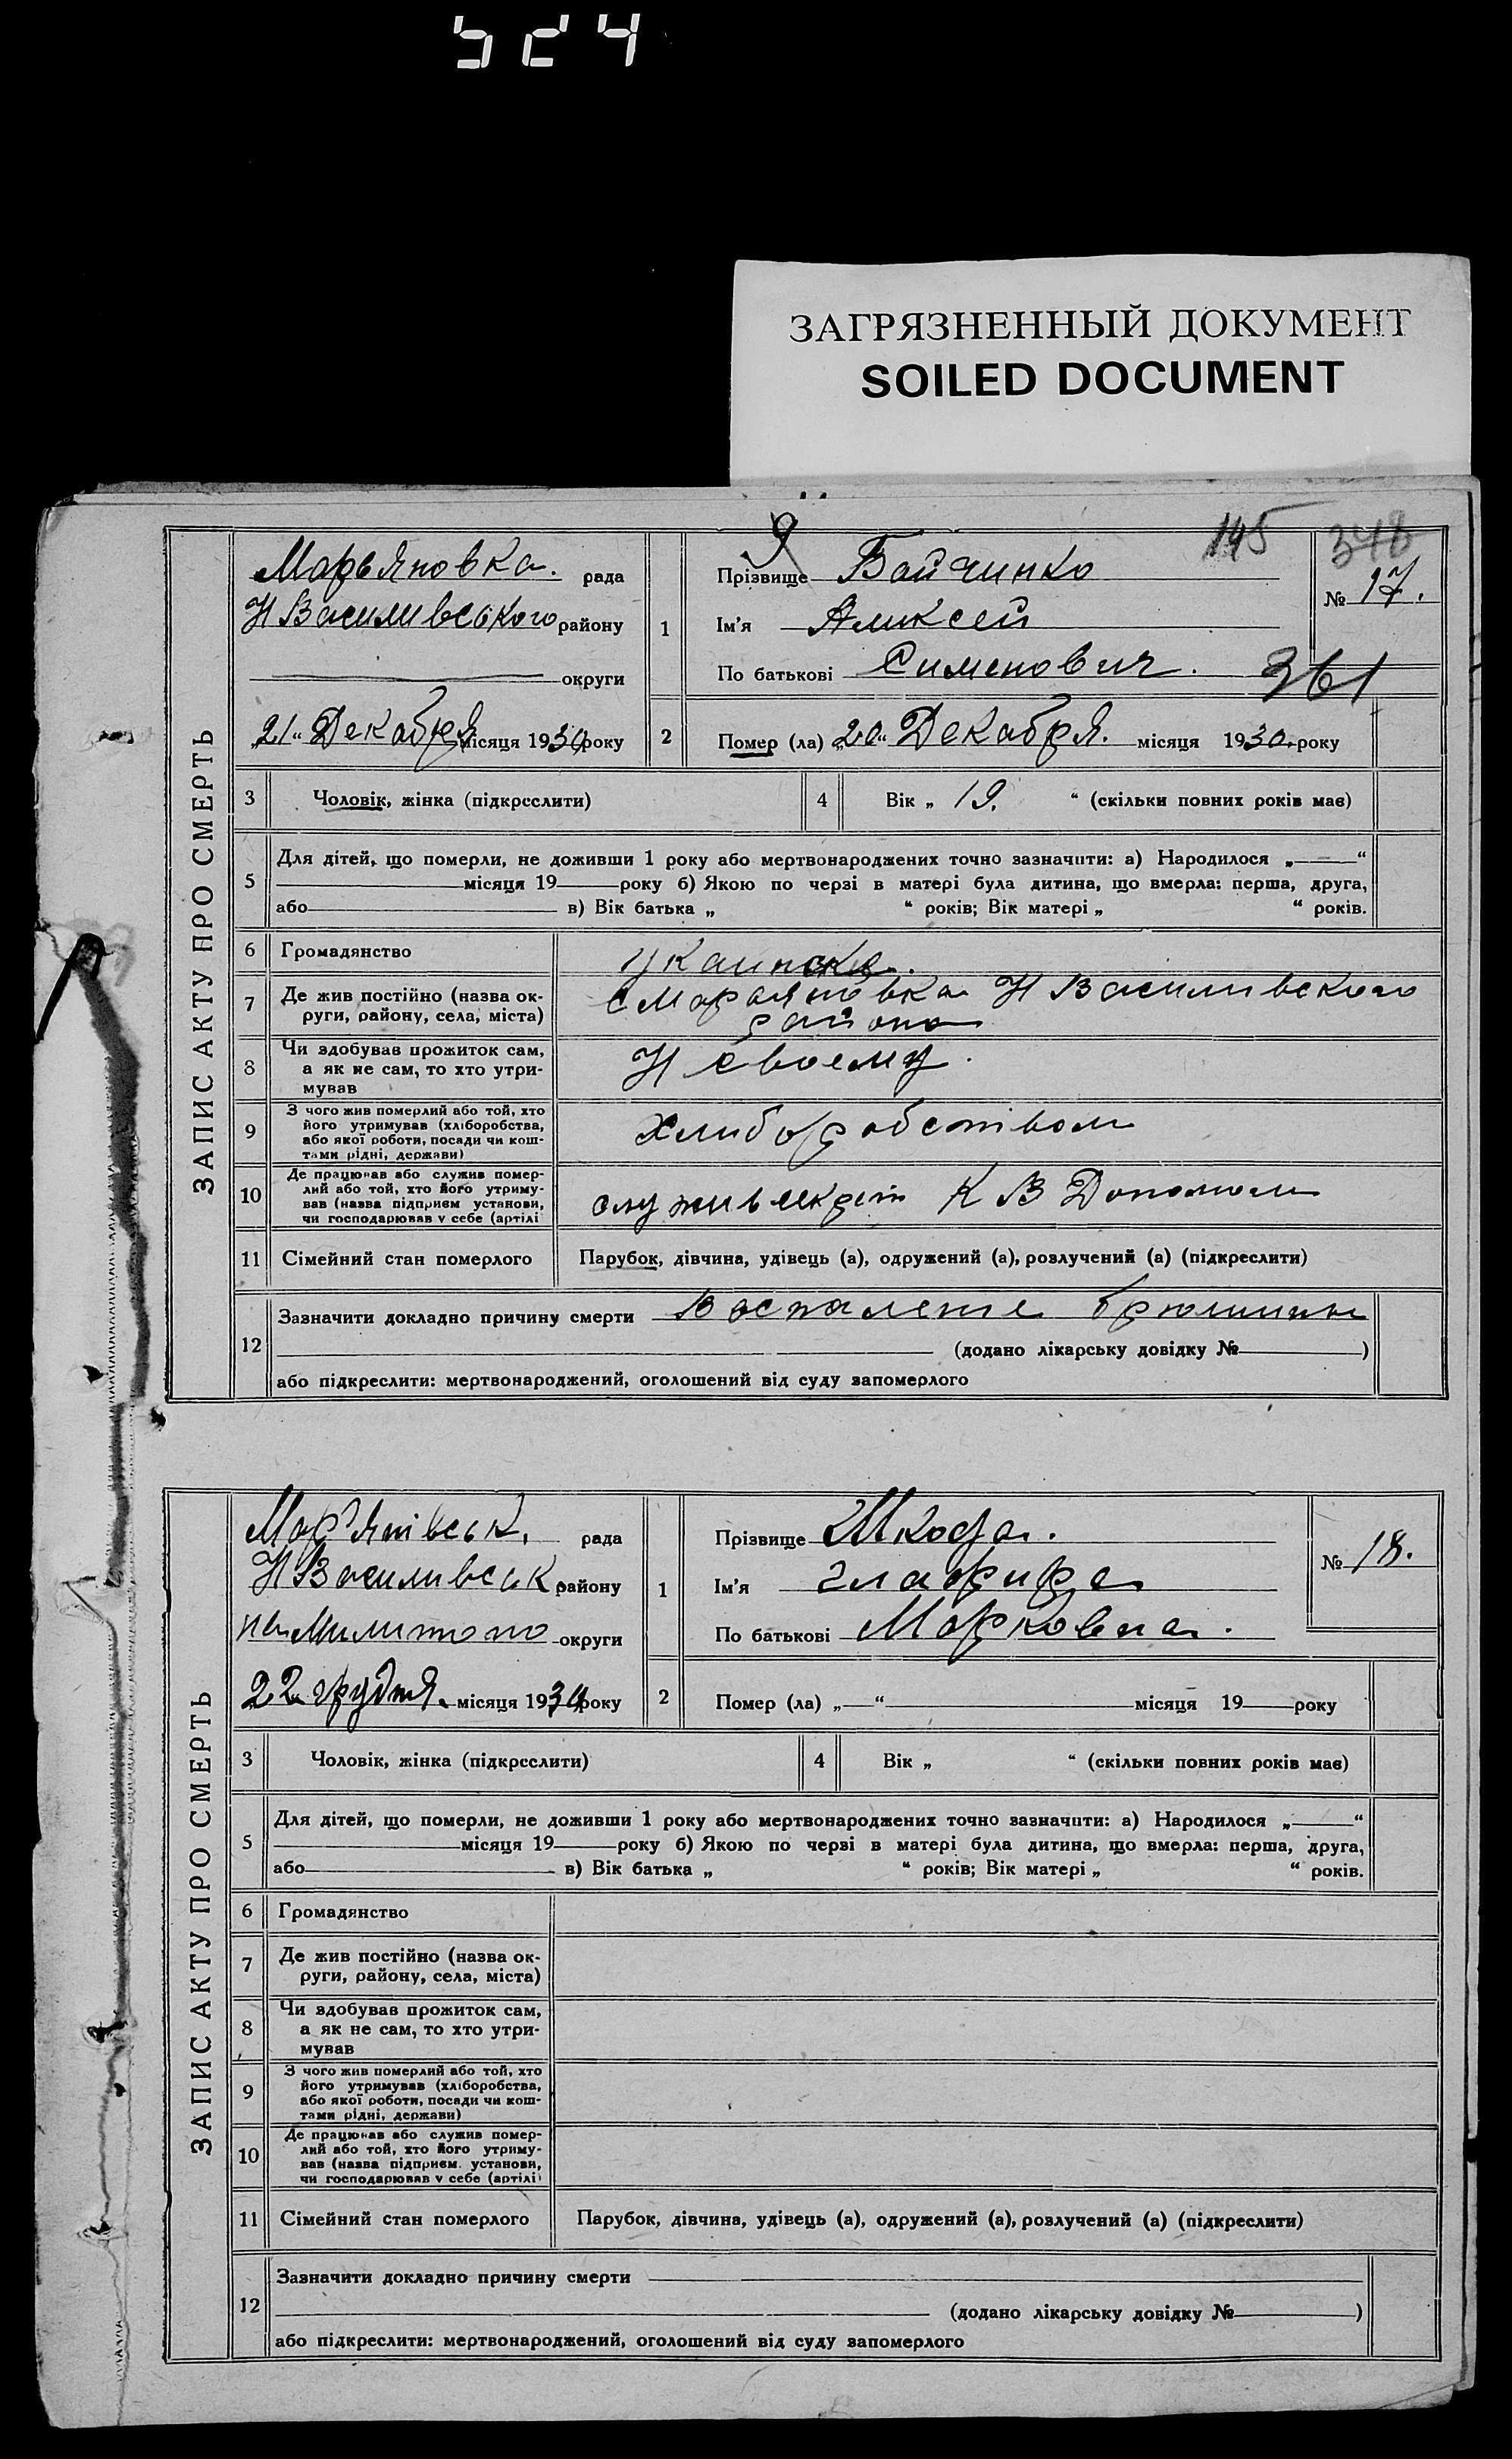 524
ЗАГРЯЗНЕННЫЙ ДОКУМЕНТ
SOILED DOCUMENT
145 348
ЗАПИС АКТУ ПРО СМЕРТЬ
Марьяновка. рада
Н Василивського району
округи
„21“ Декабря місяця 1930 року
1
Прізвище Байчинко
№ 17.
Ім'я Аликсей
По батькові Сименович.
361
2 Помер (ла) „20“ Декабря. місяця 1930. року
3 Чоловік, жінка (підкреслити)
4 Вік „ 19. “ (скільки повних років має)
5 Для дітей, що померли, не доживши 1 року або мертвонароджених точно зазначити: а) Народилося „ “
місяця 19 року б) Якою по черзі в матері була дитина, що вмерла: перша, друга,
або в) Вік батька „ “ років; Вік матері „ “ років.
6 Громадянство
7 Де жив постійно (назва округи, району, села, міста) с Марьяновка Н Василивского
района
8 Чи здобував прожиток сам,
а як не сам, то хто утри-
мував
9 З чого жив померлий або той, хто
його утримував (хліборобства,
або якої роботи, посади чи кош-
тами рідні, держави)
Хлиборобством
10 Де працював або служив помер-
лий або той, хто його утриму-
вав (назва підприєм установи,
чи господарював у себе (артілі
11 Сімейний стан померлого Парубок, дівчина, удівець (а), одружений (а), розлучений (а) (підкреслити)
12 Зазначити докладно причину смерти Воспаление брюшины
(додано лікарську довідку № )
або підкреслити: мертвонароджений, оголошений від суду запомерлого
ЗАПИС АКТУ ПРО СМЕРТЬ
Мар'янівськ. рада
Н Василивськ району
округи
22 грудня. місяця 1930 року
1
Прізвище Шкода.
№ 18.
Ім'я Глафира
По батькові Марковна.
2 Помер (ла) „ “ місяця 19 року
3 Чоловік, жінка (підкреслити)
4 Вік „ “ (скільки повних років має)
5 Для дітей, що померли, не доживши 1 року або мертвонароджених точно зазначити: а) Народилося „ “
місяця 19 року б) Якою по черзі в матері була дитина, що вмерла: перша, друга,
або в) Вік батька „ “ років; Вік матері „ “ років.
6 Громадянство
7 Де жив постійно (назва ок-
руги, району, села, міста)
8 Чи здобував прожиток сам,
а як не сам, то хто утри-
мував
9 З чого жив померлий або той, хто
його утримував (хліборобства,
або якої роботи, посади чи кош-
тами рідні, держави)
10 Де працював або служив помер-
лий або той, хто його утриму-
вав (назва підприєм. установи,
чи господарював у себе (артілі)
11 Сімейний стан померлого Парубок, дівчина, удівець (а), одружений (а), розлучений (а) (підкреслити)
12 Зазначити докладно причину смерти
(додано лікарську довідку № )
або підкреслити: мертвонароджений, оголошений від суду запомерлого